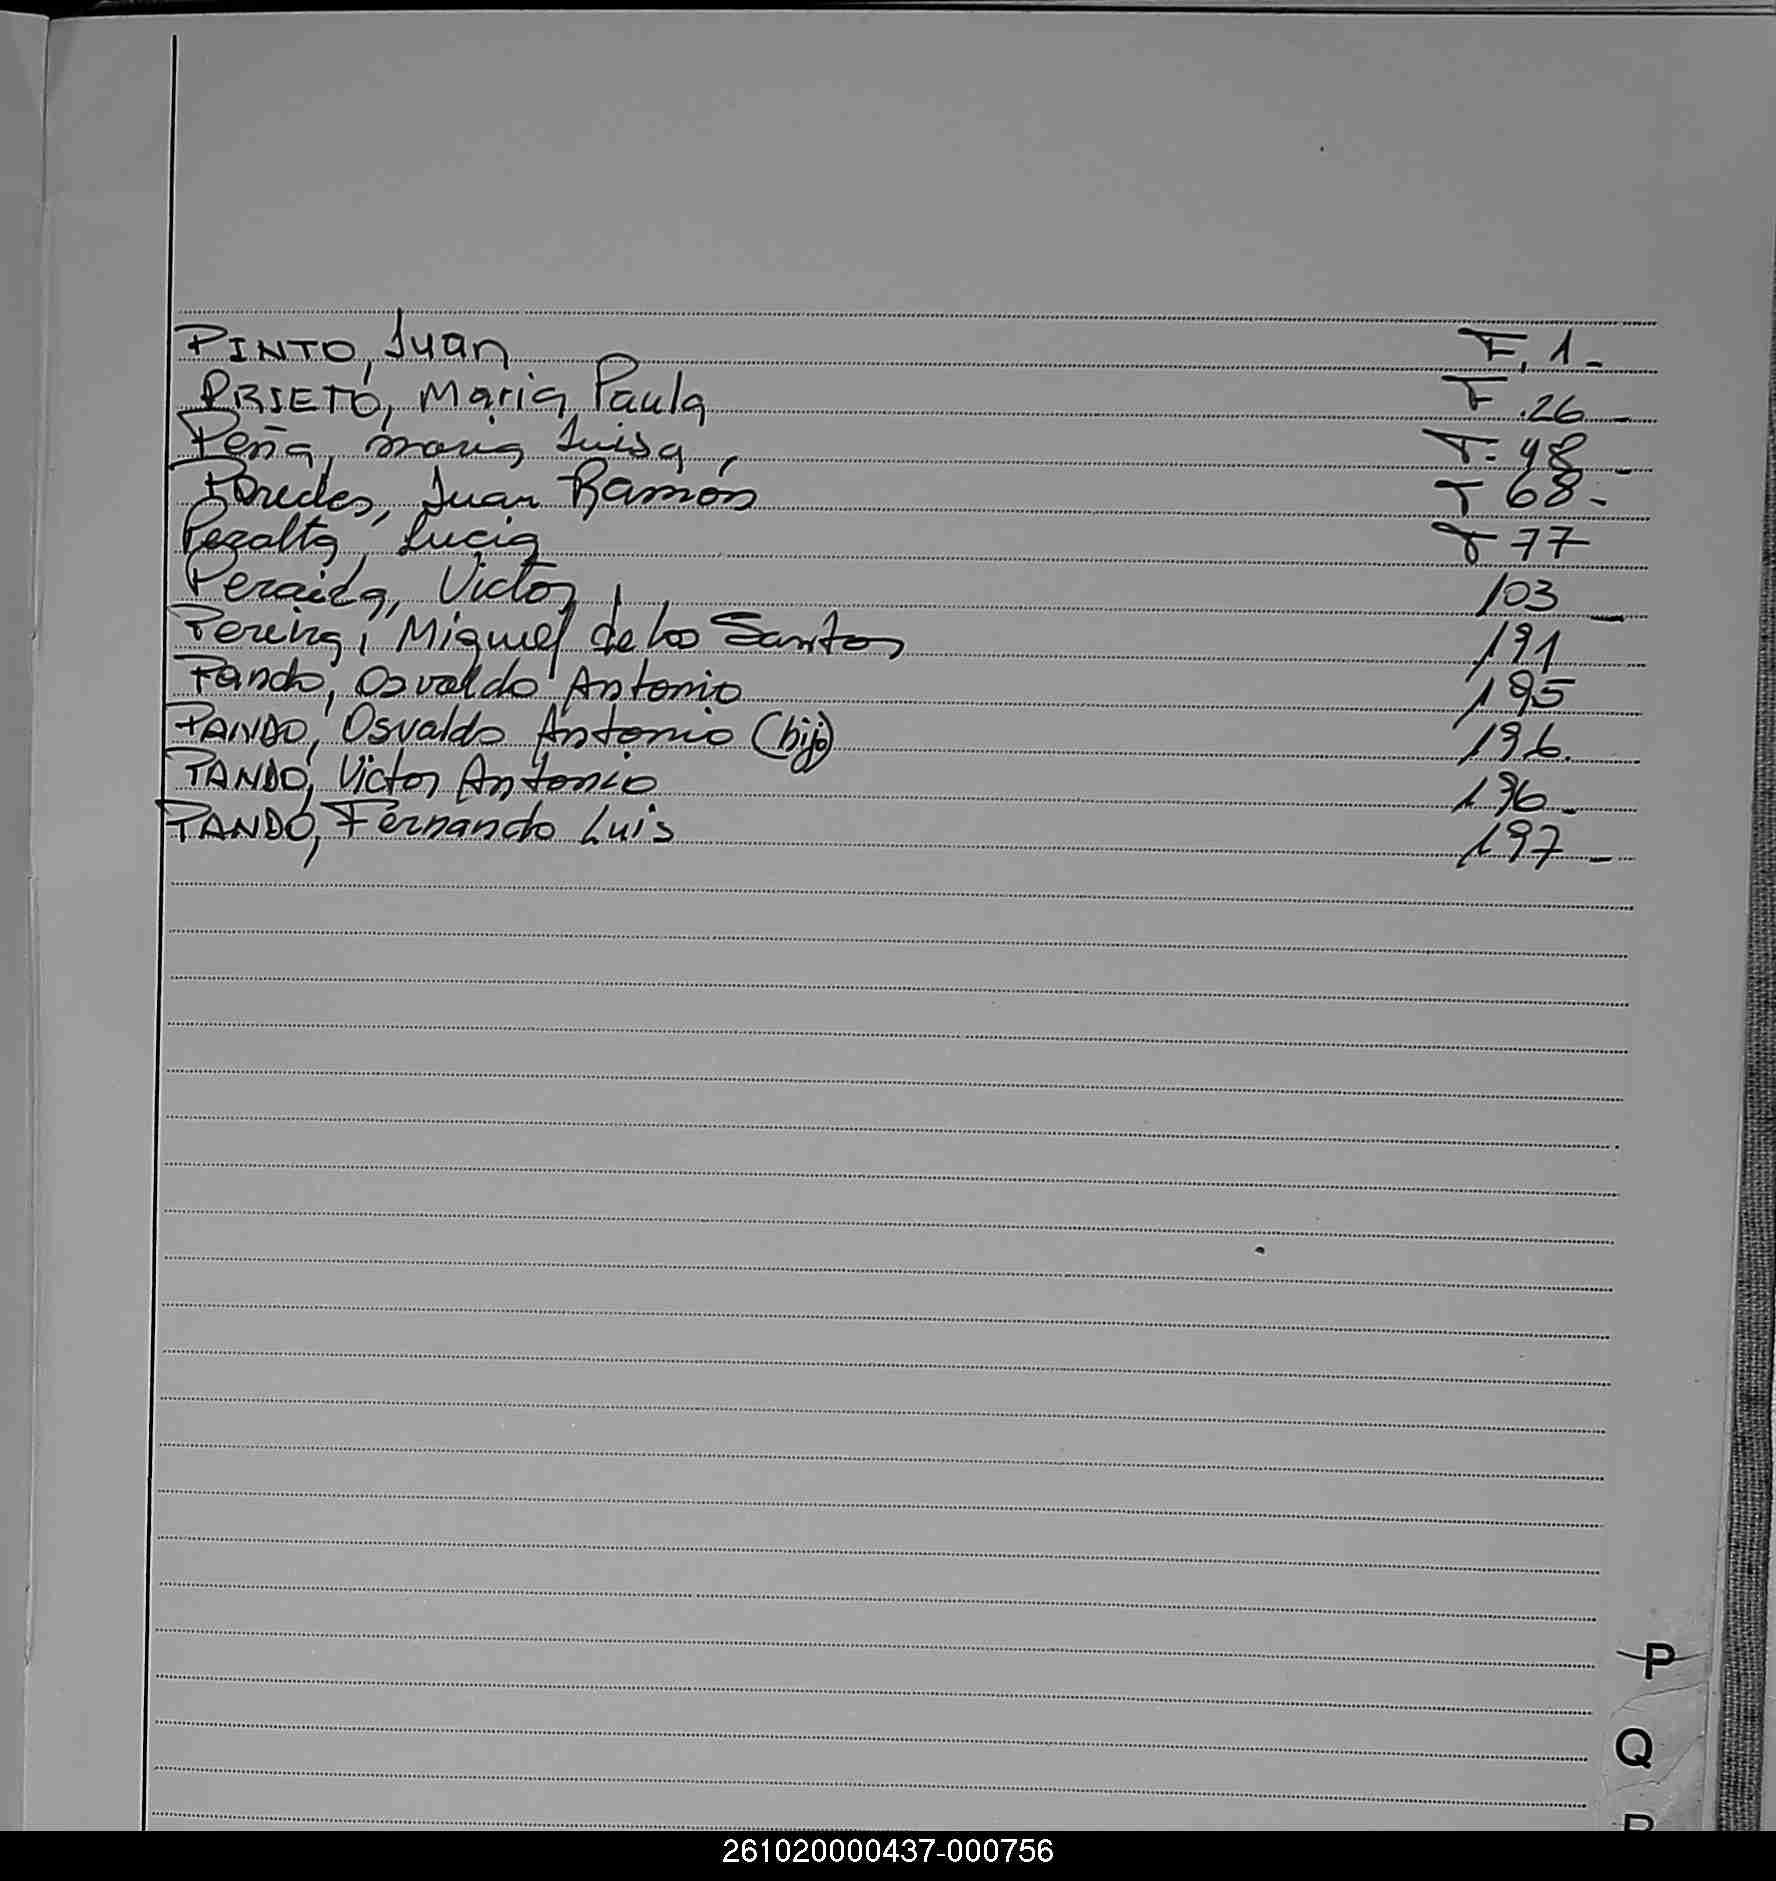 PINTO, Juan F. 1-
PRIETO, Maria Paula F. 26-
Peña, maria Luisa, F. 48-
Paredes, Juan Ramón F 68-
Peralta, Lucia F 77
Pereira, Victor 103-
Pereira, Miguel de los Santos 191
Pando, Osvaldo Antonio 195
PANDO, Osvaldo Antonio (hijo) 196.
PANDO, Victor Antonio 196-
PANDO, Fernando Luis 197-
P
Q
261020000437-000756